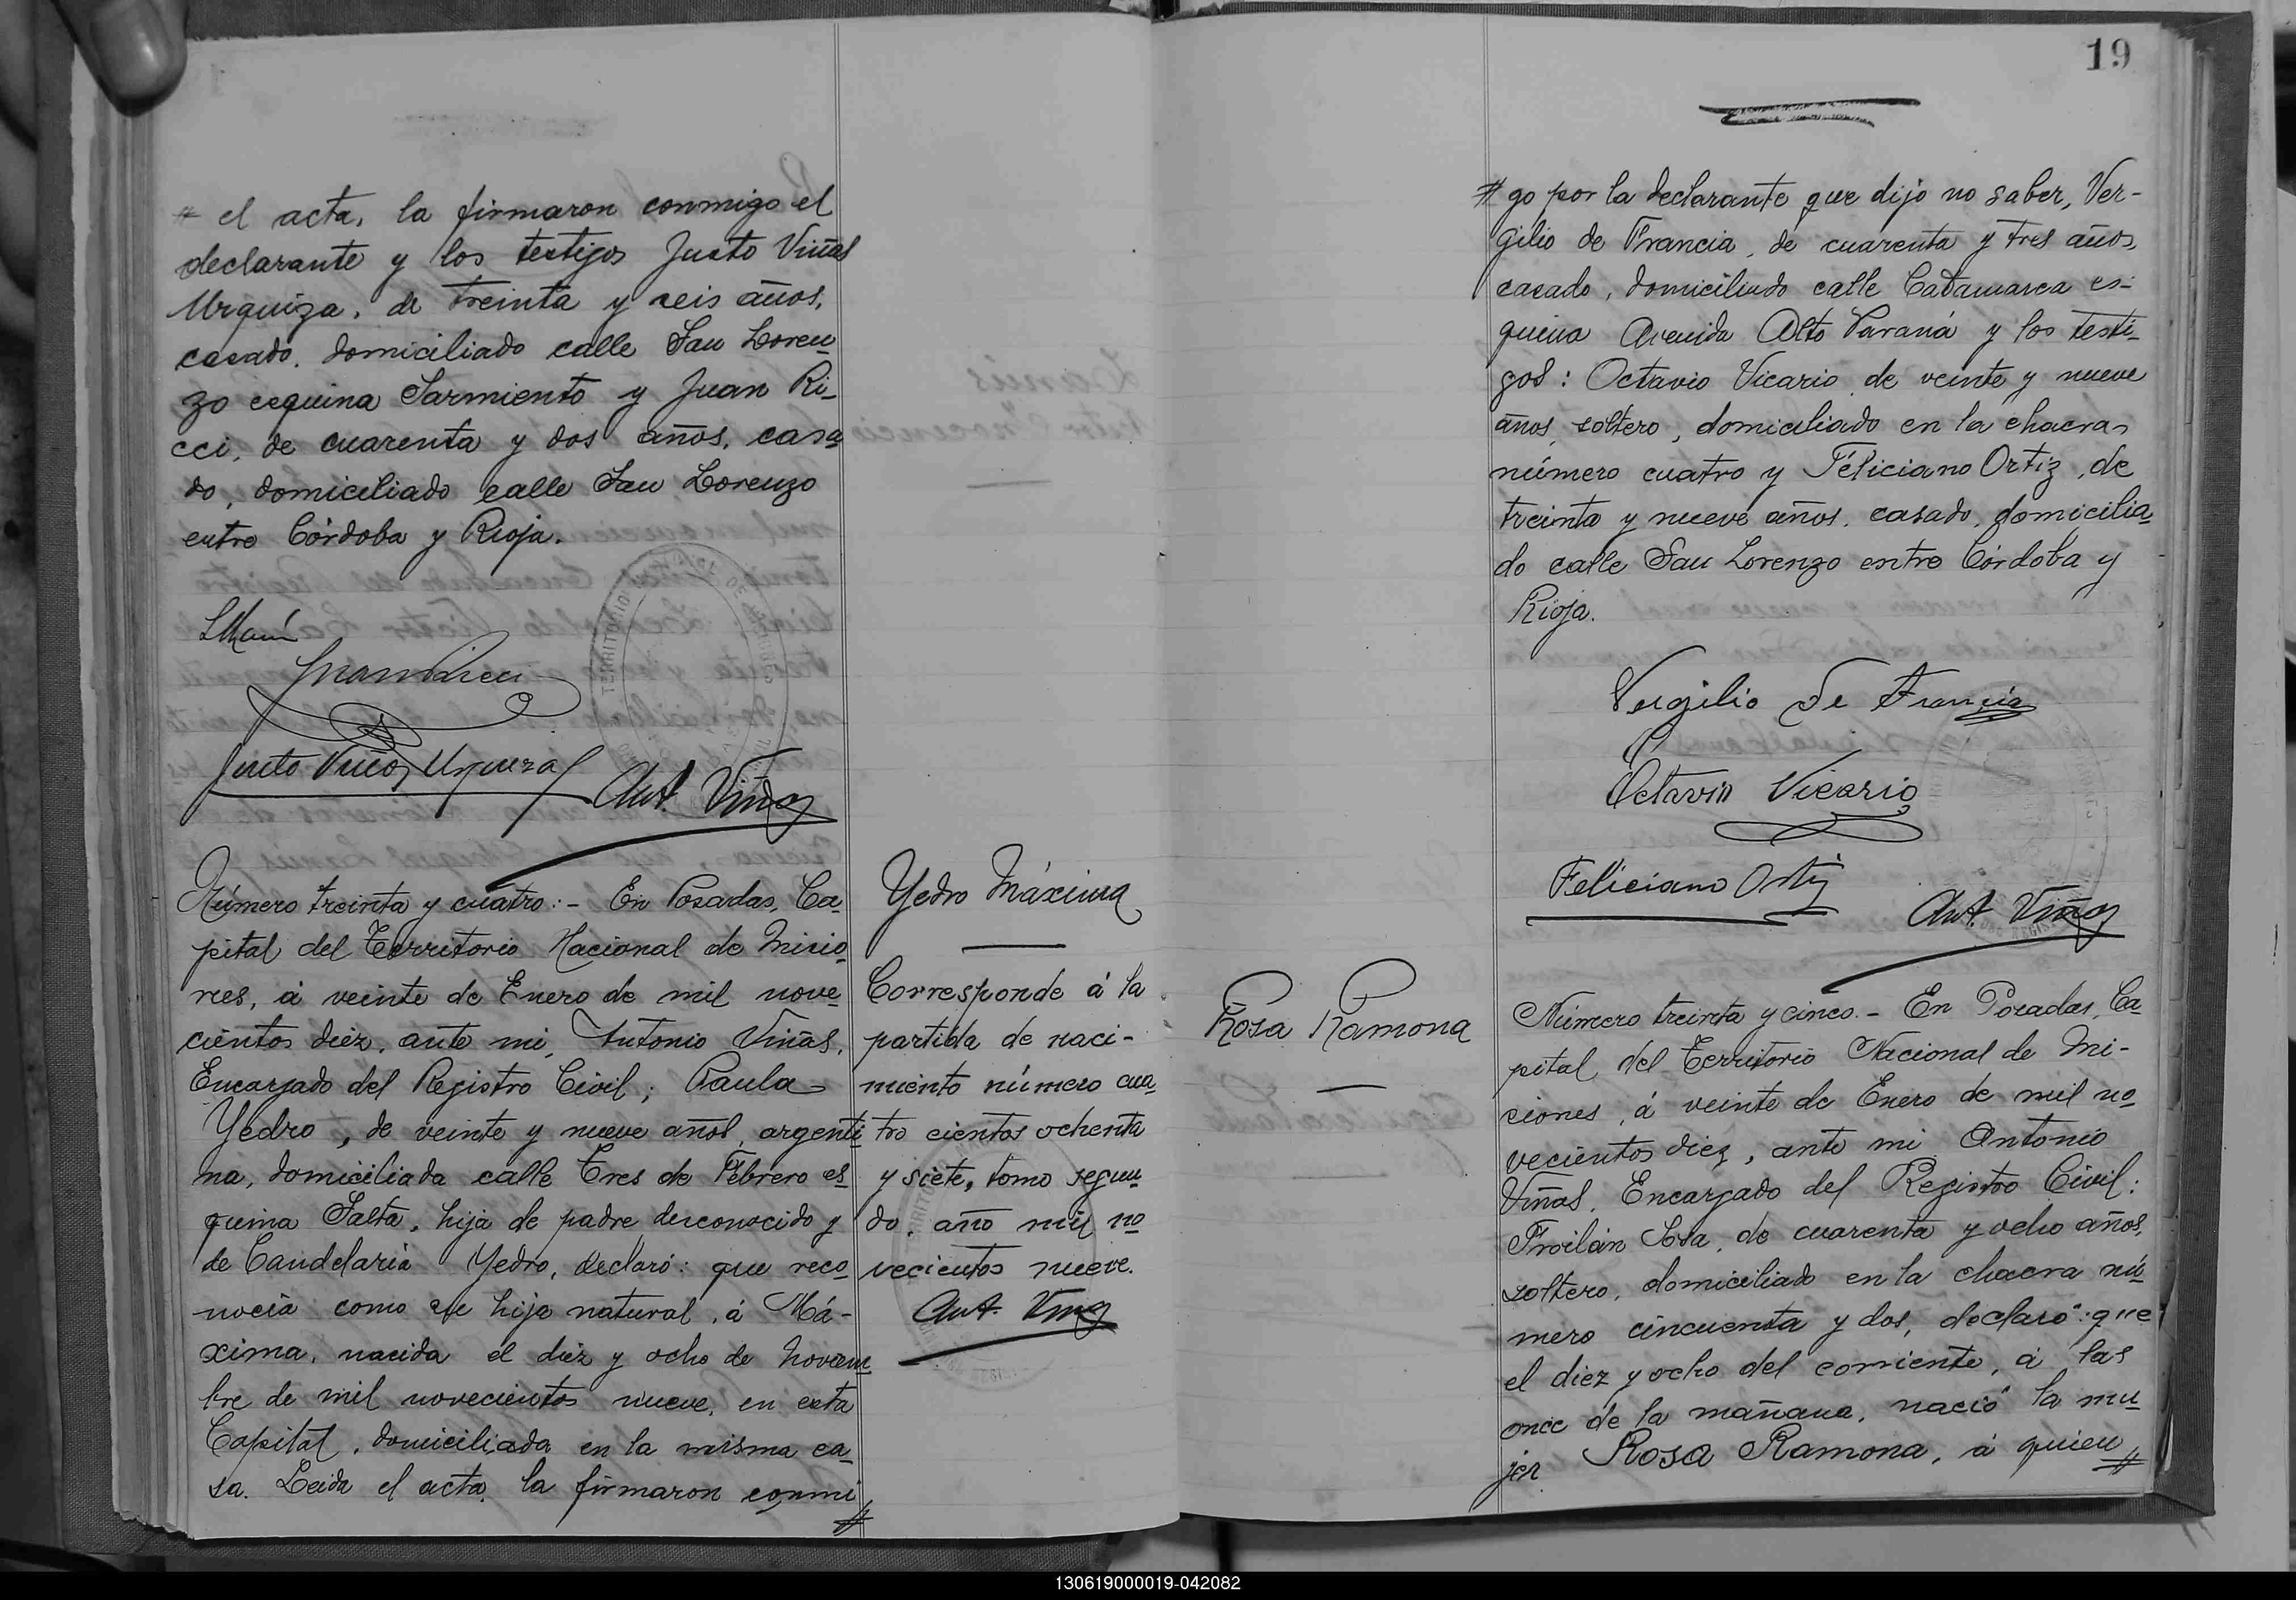 # el acta, la firmaron conmigo el
declarante y los testigos Justo Viñas
Urquiza, de treinta y seis años,
casado, domiciliado calle San Loren-
zo esquina Sarmiento y Juan Ri-
cci, de cuarenta y dos años, casa-
do, domiciliado calle San Lorenzo
entre Córdoba y Rioja.
Juan Ricci
Justo Viñas Urquiza
Ant. Viñas
Número treinta y cuatro:- En Posadas, Ca-
pital del Territorio Nacional de Misio-
nes, á veinte de Enero de mil nove-
cientos diez, ante mi, Antonio Viñas,
Encargado del Registro Civil; Paula
Yedro, de veinte y nueve años, argenti-
na, domiciliada calle Tres de Febrero es-
quina Salta, hija de padre desconocido y
de Candelaria Yedro, declaró: que reco-
nocía como su hija natural, á Má-
xima, nacida el diez y ocho de Noviem-
bre de mil novecientos nueve, en esta
Capital, domiciliada en la misma ca-
sa. Leida el acta, la firmaron conmi #
Yedro Máxima
Corresponde á la
partida de naci-
miento número cua-
tro cientos ochenta
y siete, tomo segun-
do, año mil no-
vecientos nueve.
Ant. Viñas
19
# go por la declarante que dijo no saber, Ver-
gilio de Francia, de cuarenta y tres años,
casado, domiciliado calle Catamarca es-
quina Avenida Alto Paraná y los testi-
gos: Octavio Vicario, de veinte y nueve
años, soltero, domiciliado en la chacra
número cuatro y Feliciano Ortiz, de
treinta y nueve años, casado, domicilia-
do calle San Lorenzo entre Córdoba y
Rioja.
Vergilio de Francia
Octavio Vicario
Feliciano Ortiz
Ant. Viñas
Rosa Ramona
Número treinta y cinco.- En Posadas, Ca-
pital del Territorio Nacional de Mi-
siones, á veinte de Enero de mil no-
vecientos diez, ante mi Antonio
Viñas, Encargado del Registro Civil:
Froilán Sosa, de cuarenta y ocho años,
soltero, domiciliado en la chacra nú-
mero cincuenta y dos, declaró: que
el diez y ocho del corriente, á las
once de la mañana, nació la mu-
jer Rosa Ramona, á quien #
130619000019-042082